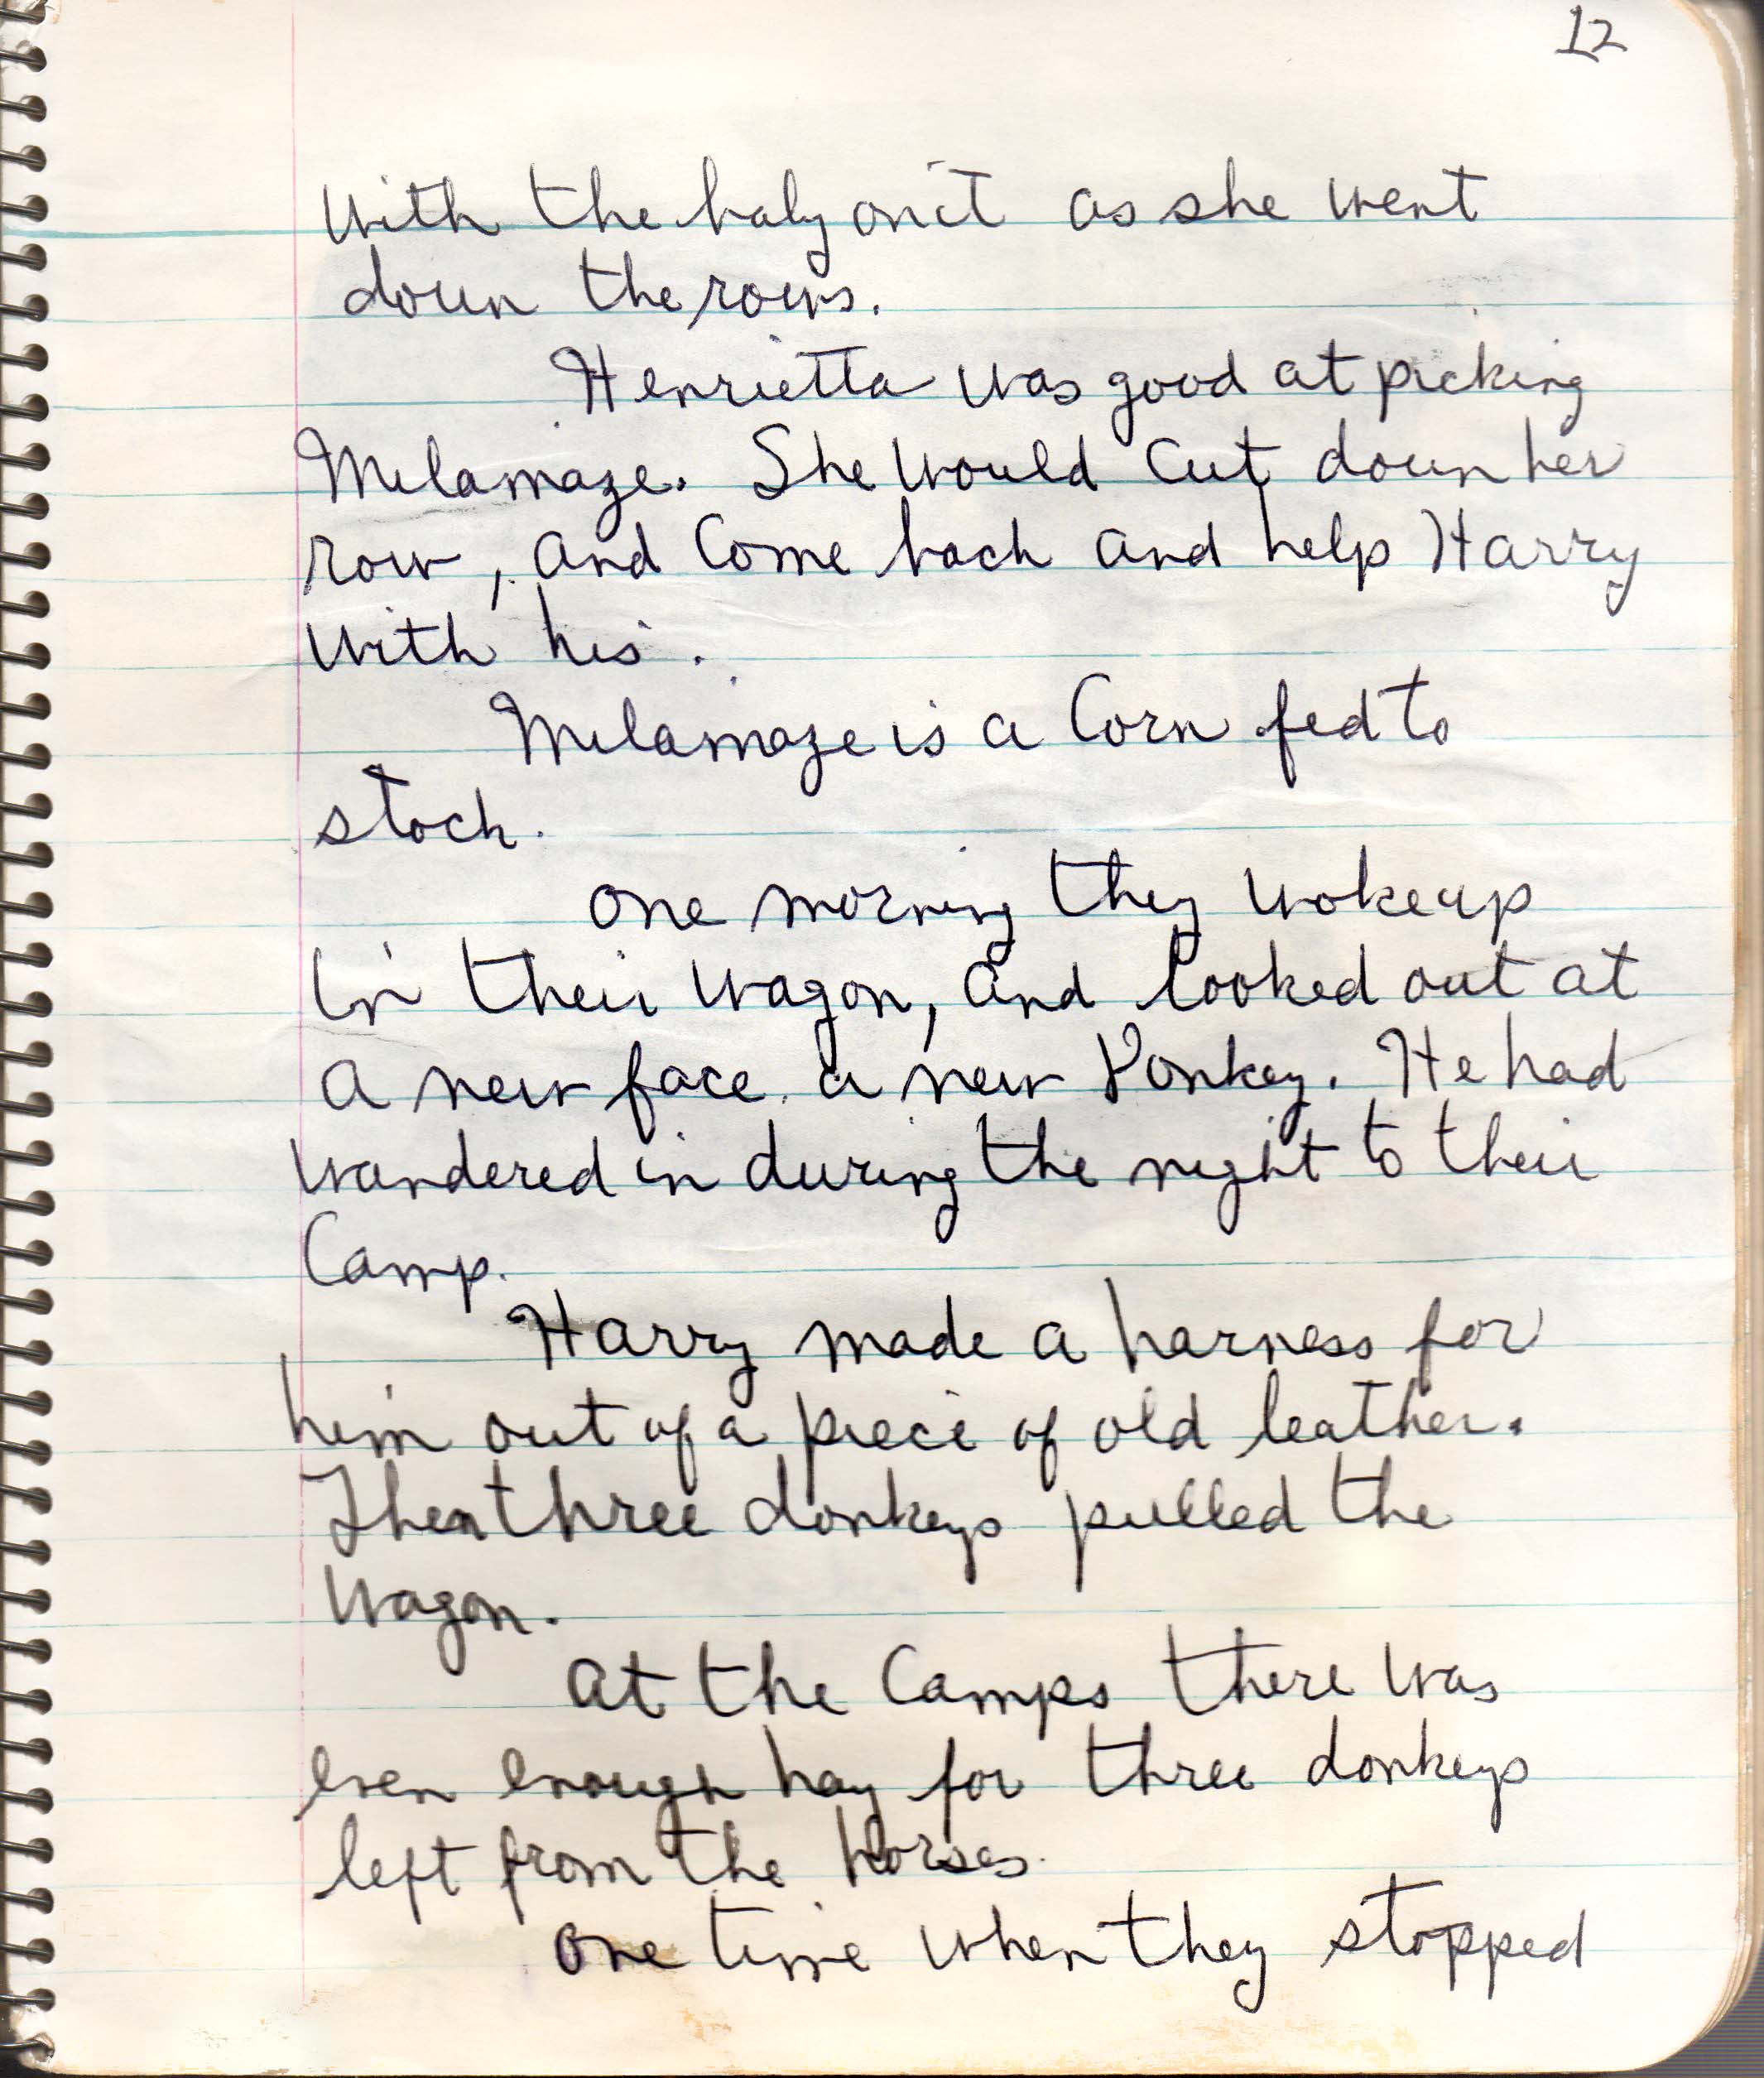 12
with the baby on it as she went
down the rows.
Henrietta was good at picking
Milamaze. She would cut down her
row, and Come back and help Harry
with his.
Milamaze is a Corn fed to
stock.
One morning they woke up
in their wagon, and looked out at
a new face. a new Donkey. He had
wandered in during the night to their
Camp.
Harry made a harness for
him out of a piece of old leather.
Then three donkeys pulled the
wagon.
At the Camps there was
even enough hay for three donkeys
left from the horses.
One time when they stopped